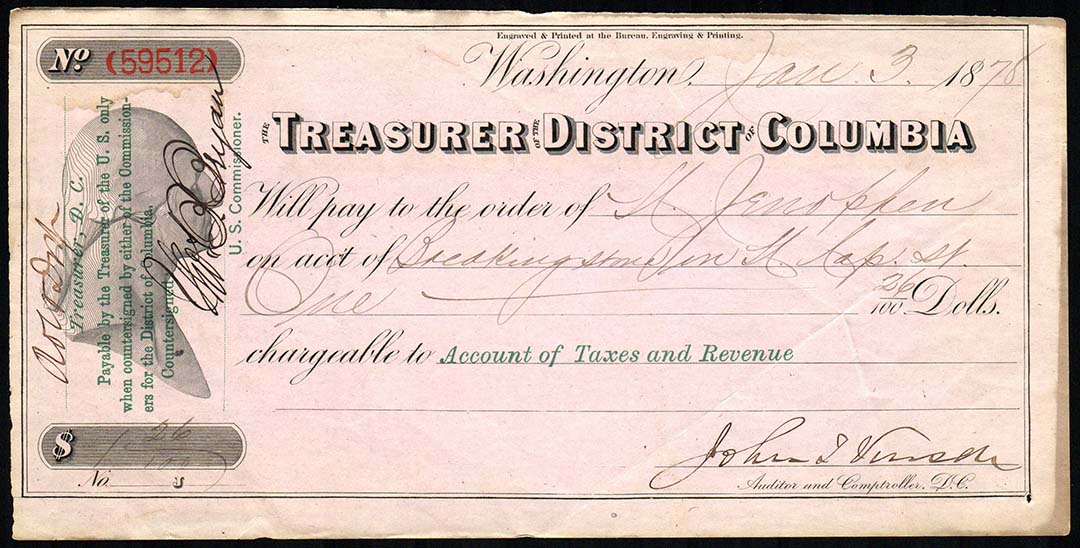 Engraved & Printed at the Bureau, Engraving & Printing.
No. (59512)
Washington, Jan 3 1878
THE TREASURER OF THE DISTRICT OF COLUMBIA
Will pay to the order of
on acct of Breaking stone on N. Cap. St.
One 26/100 Dolls.
chargeable to Account of Taxes and Revenue
Auditor and Comptroller, D.C.
Treasurer, D. C.
Payable by the Treasurer of the U. S. only
when countersigned by either of the Commission-
ers for the District of Columbia.
Countersigned
U. S. Commissioner.
$ 1 26/100
No.
John